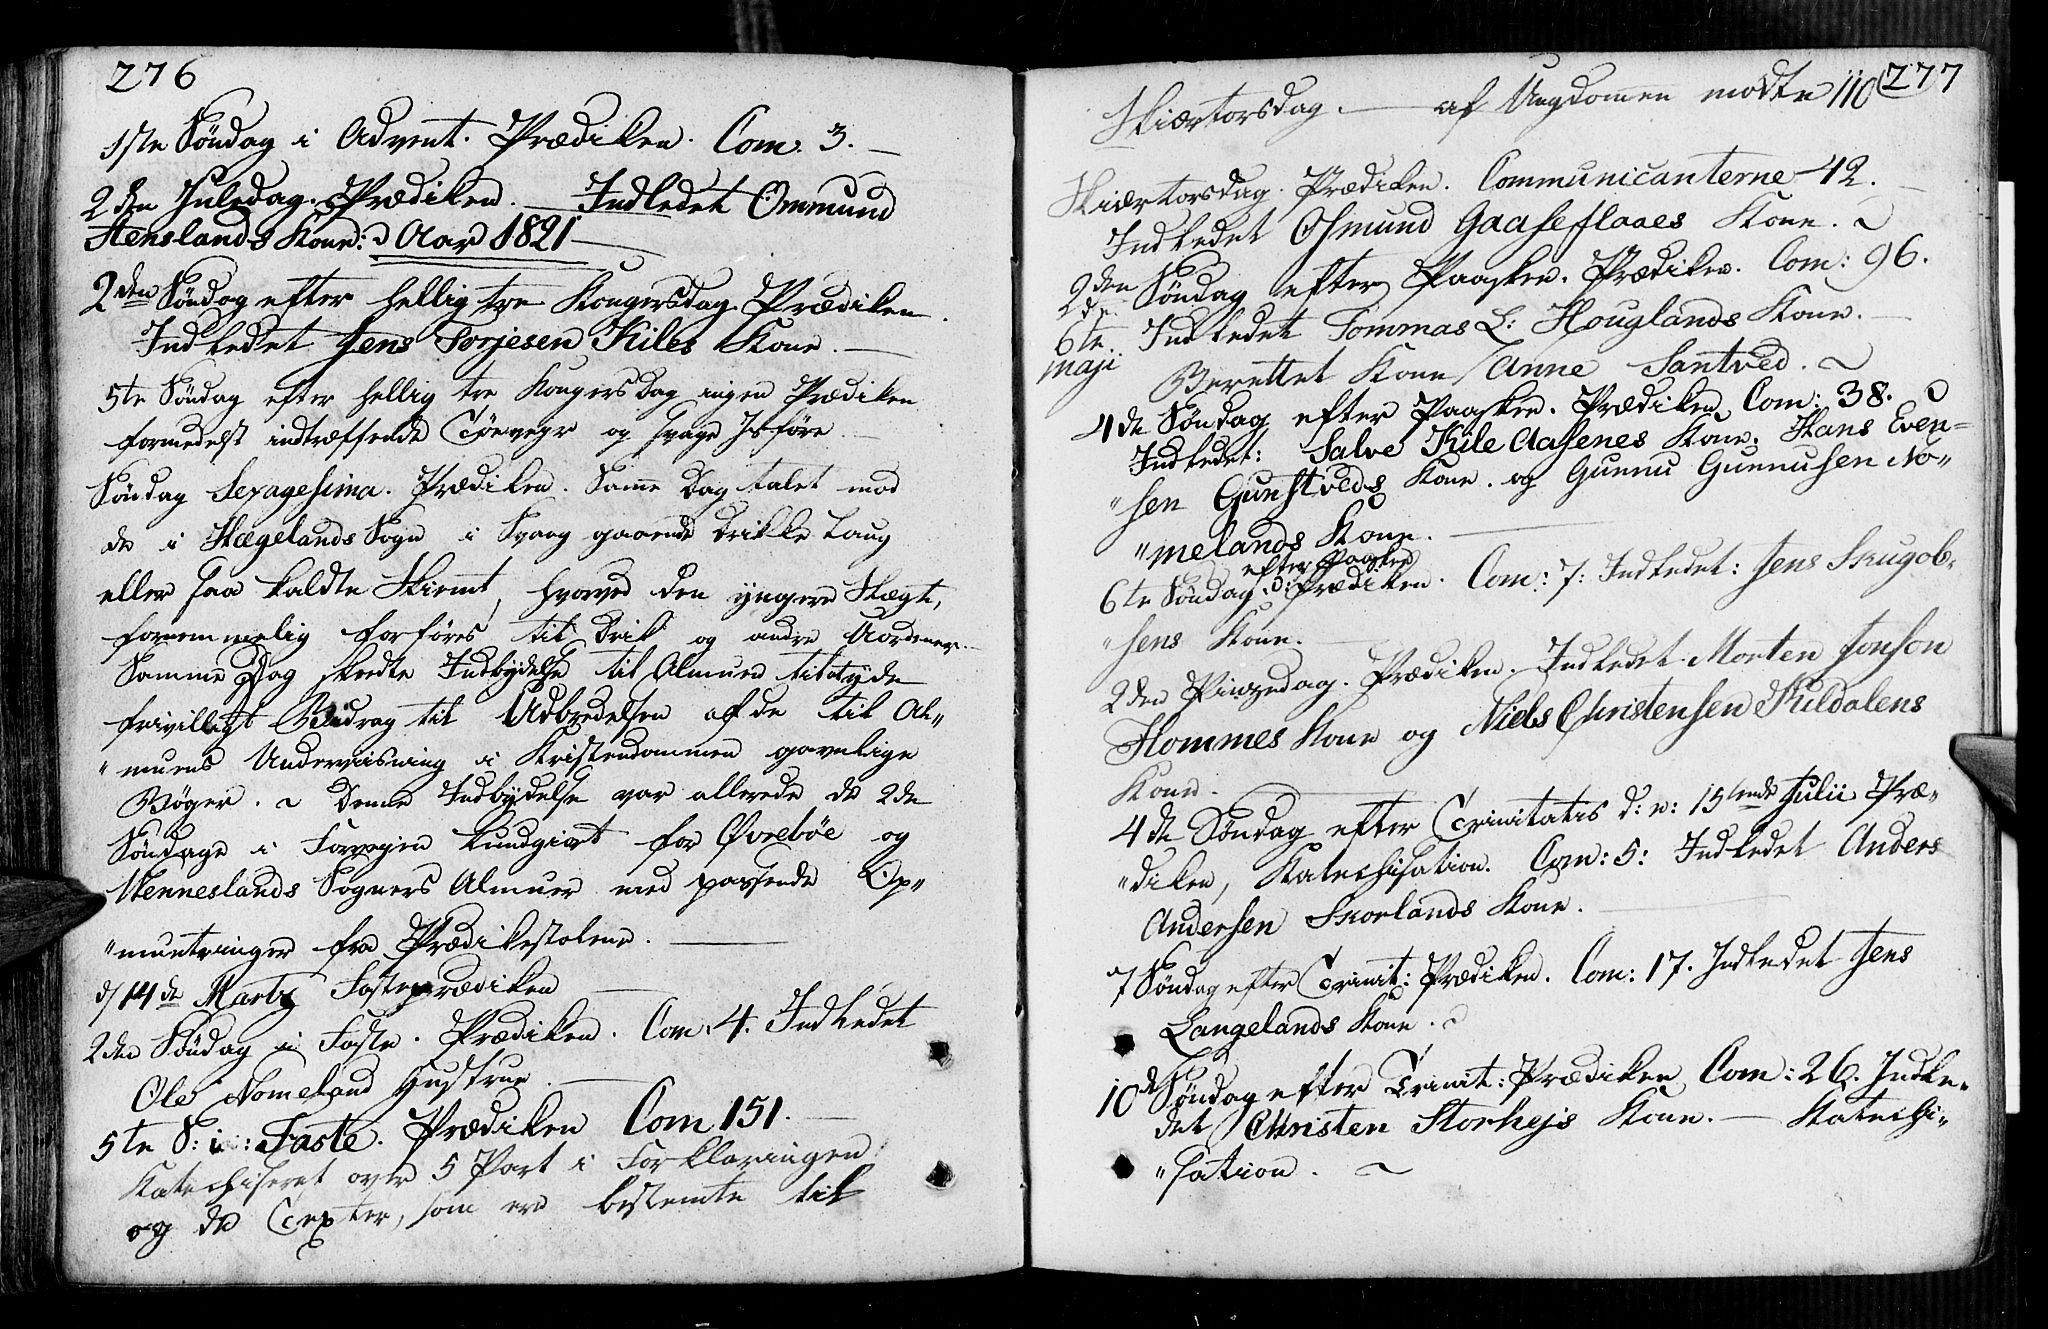 276
1ste Søndag i Advent. Prædiken. Com. 3. —
2den Juledag. Prædiken. — Indledet Ommund
Stenslands Kone: Aar 1821 —
2den Søndag efter hellig tre Kongersdag Prædiken.
Indledet Jens Torjesen Kiles Kone. —
5te Søndag efter hellig tre Kongers Dag ingen Prædiken
formedelst indtræffende Tøeveyr og svage Isføre —
Søndag Sexagesima. Prædiken. Samme Dag talet mod
de i Hægelands Sogn i Svang gaaende Drikke Laug
eller saa kaldte Skiemt, hvorved den yngere Slægt,
fornemmelig forføres til Drik og andre Uordener —
Samme Dag skedte Indbydelse til Almuen til at yde
frivilligt Bidrag til Udbredelsen af de til Al„
„muens Underviisning i Kristendommen gavnlige
Bøger. ~ Denne Indbydelse var allerede de 2de
Søndage i Forvejen kundgiort for Øvrebøe og
Henneslands Sogners Almuer med passende Op„
„muntringer fra Prædikestolene. —
d/ 14de Marty Fasteprædiken —
2den Søndag i Faste. Prædiken. Com. 4. Indledet
Ole Nomeland Hustrue. —
5te S: i: Faste. Prædiken Com 151. —
Katechiseret over 5 Part i Forklaringen
og de Texter, som ere bestemte til
277
Skiærtorsdag. — af Ungdommen mødte 110
Skiærtorsdag. Prædiken. Communicanterne 42. —
Indledet Osmund Gaaseflaaes Kone. ~
2den Søndag efter Paasken. Prædiken. Com: 96.
Indledet Tommas L: Houglands Kone. —
6te maji
Berettet Kone Anne Santved. ~
4de Søndag efter Paasken. Prædiken Com: 38.
Indledet: Salve Kile Aasenes Kone. Hans Even=
„sen Gunstveds Kone. og Gunnu Gunnusen No„
„melands Kone. —
efter Paasken
6te Søndag Prædiken. Com: 7: Indledet: Jens Skugob„
„sens Kone.
2den Pinzedag. Prædiken. Indledet Morten Jonson
Hommes Kone og Niels Christensen Kuldalens
Kone. —
4de Søndag efter Trinitatis d: e: 15tende Julii Præ„
„diken, Katechisation. Com: 5: Indledet Anders
Andersen Skorlands Kone. —
7 Søndag efter Trinit: Prædiken. Com: 17. Indledet Jens
Langelands Kone. ~
10de Søndag efter Trinit: Prædiken Com: 26. Indle„
det Christen Storhejs Kone. — Katechi„
„sation. ~